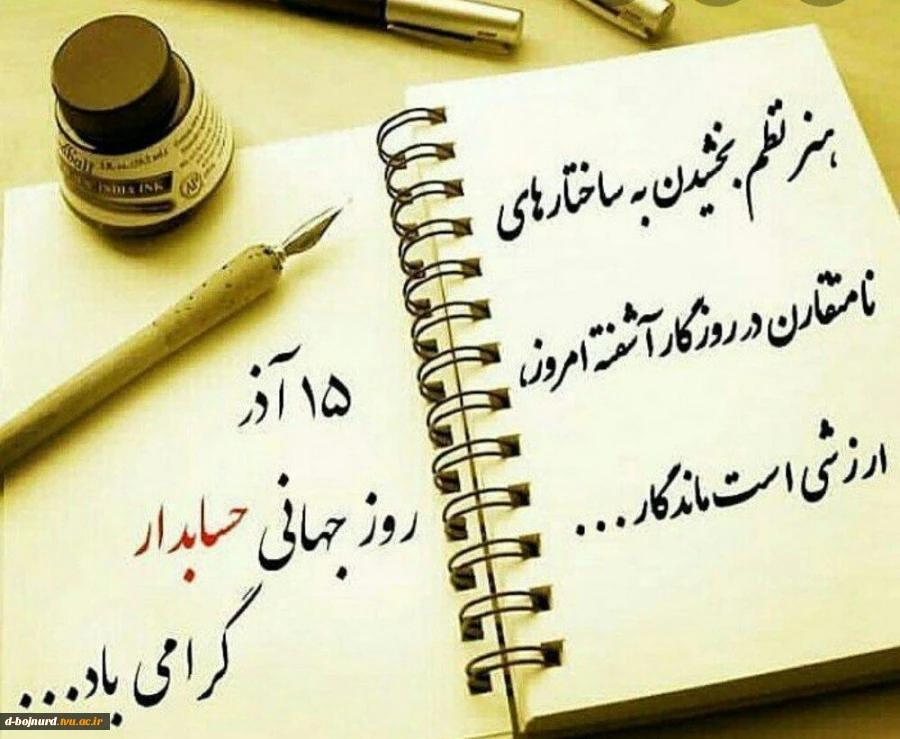 هنر نظم بخشیدن به ساختارهای
نامتقارن در روزگار آشفته امروز،
ارزشی است ماندگار...
۱۵ آذر
روز جهانی حسابدار
گرامی باد...
INDIA INK
d-bojnurd.tvu.ac.ir